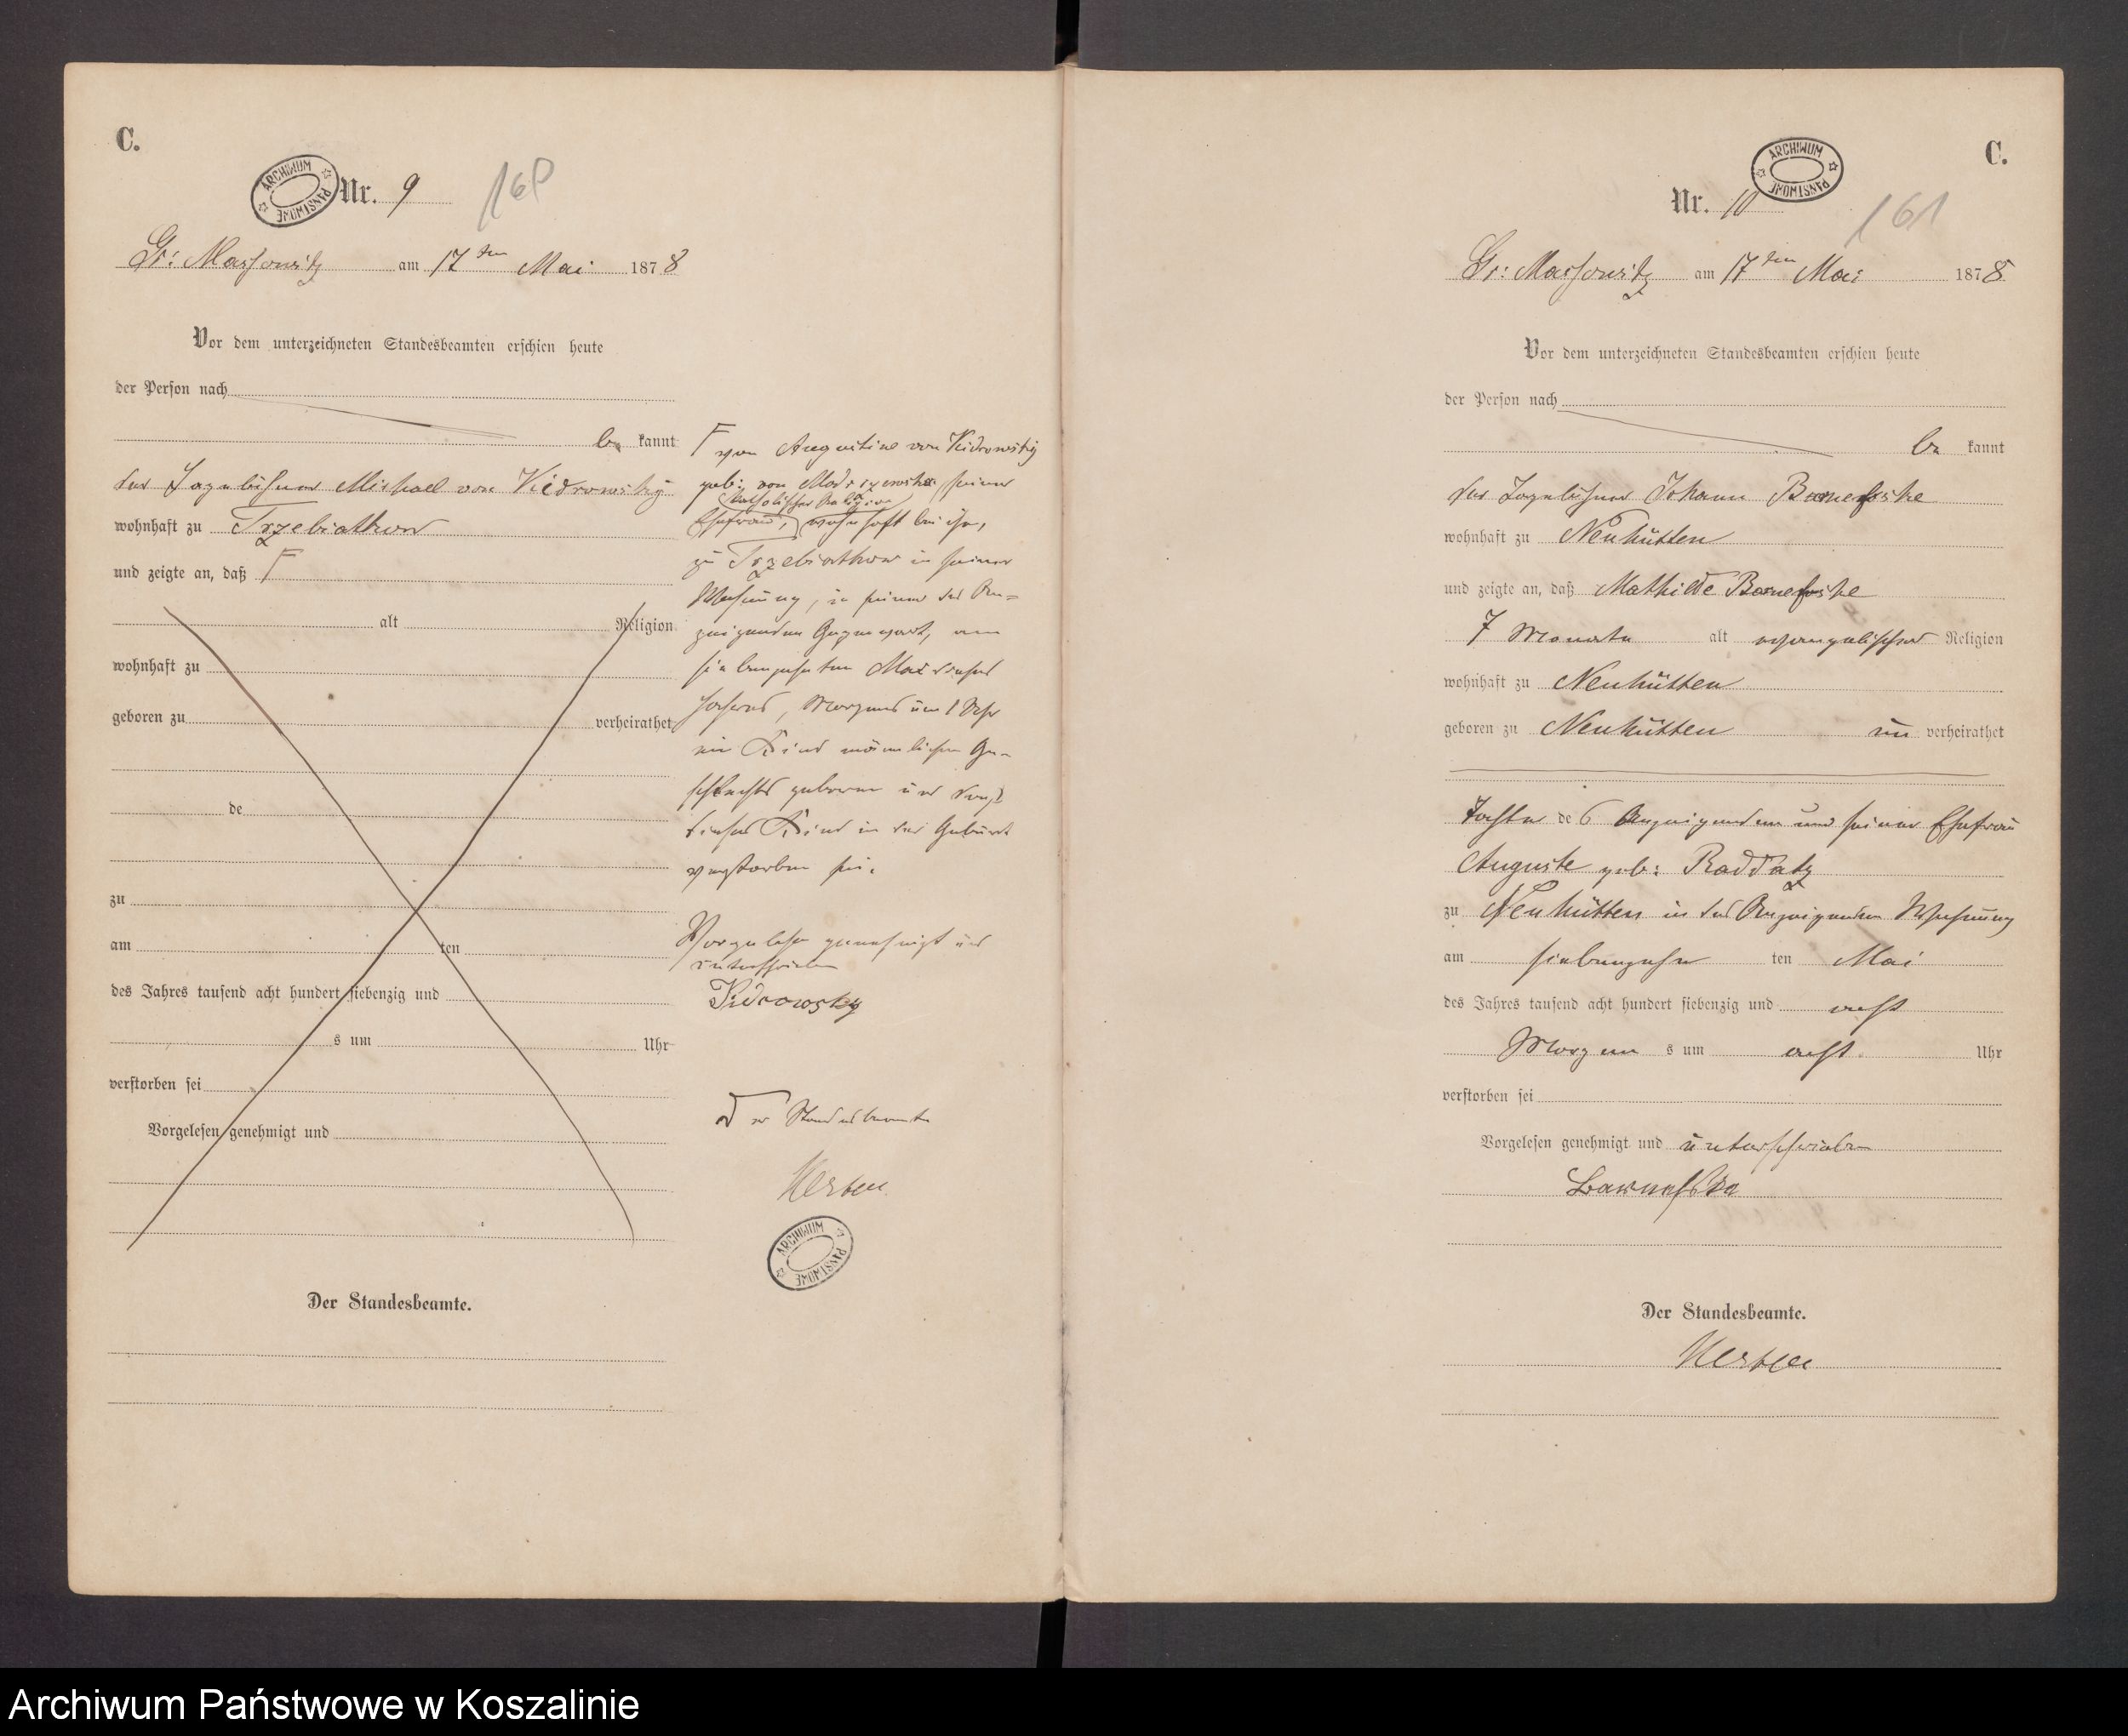 C.
ARCHIWUM PAŃSTWOWE
Nr. 9
160
Gr: Massowitz am 17ten Mai 1878
Vor dem unterzeichneten Standesbeamten erschien heute
der Person nach
be kannt
der Tagelöhner Michael von Kidrowsky
wohnhaft zu Trzebiatkow
und zeigte an, daß
alt Religion
wohnhaft zu
geboren zu verheirathet
de
zu
am ten
des Jahres tausend acht hundert siebenzig und
s um Uhr
verstorben sei
Vorgelesen genehmigt und
Der Standesbeamte.
von Augustine von Kidrowsky
geb: von seiner
katholischer Religion
Ehefrau, wohnhaft bei ihm,
zu Trzebiatkow in seiner
Wohnung, in seiner des An=
zeigenden Gegenwart, am
siebenzehnten Mai dieses
Jahres, Morgens um 1 Uhr
ein Kind männlichen Ge-
schlechts geboren und daß
dieses Kind in der Geburt
verstorben sei.
Vorgelesen genehmigt und
unterschrieben
Kidrowsky
Der Standesbeamte
ARCHIWUM PAŃSTWOWE
C.
ARCHIWUM PAŃSTWOWE
Nr. 10
161
Gr: Massowitz am 17ten Mai 1878
Vor dem unterzeichneten Standesbeamten erschien heute
der Person nach
be kannt
der Tagelöhner Johann Barnefske
wohnhaft zu Neuhütten
und zeigte an, daß Mathilde Barnefske
7 Monate alt evangelischer Religion
wohnhaft zu Neuhütten
geboren zu Neuhütten un verheirathet
Tochter des Anzeigenden und seiner Ehefrau
Auguste geb: Raddatz
zu Neuhütten in des Anzeigenden Wohnung
am siebenzehn ten Mai
des Jahres tausend acht hundert siebenzig und acht
Morgen s um acht Uhr
verstorben sei
Vorgelesen genehmigt und unterschrieben
Barnefske
Der Standesbeamte.
Archiwum Państwowe w Koszalinie